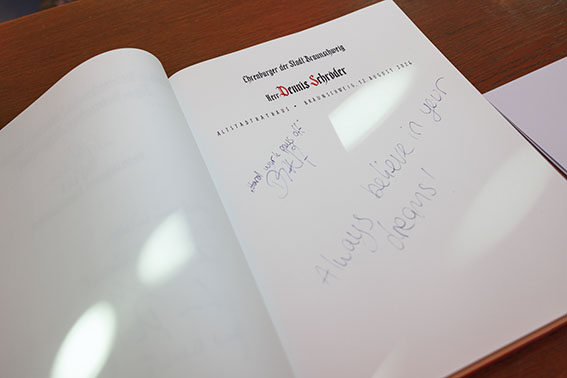 Ehrenbürger der Stadt Braunschweig
Herr Dennis Schröder
ALTSTADTRATHAUS • BRAUNSCHWEIG, 12. AUGUST 2024
"Hard work pays off"
Always believe in your
dreams!